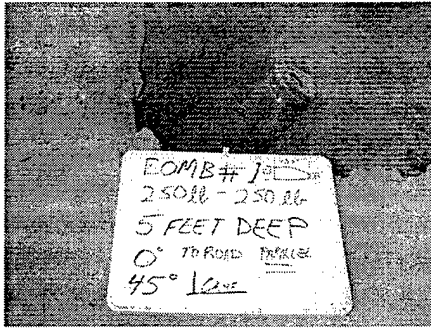 BOMB # 1
250 lb - 250 lb
5 FEET DEEP
0° TO ROAD PARALLEL
45°